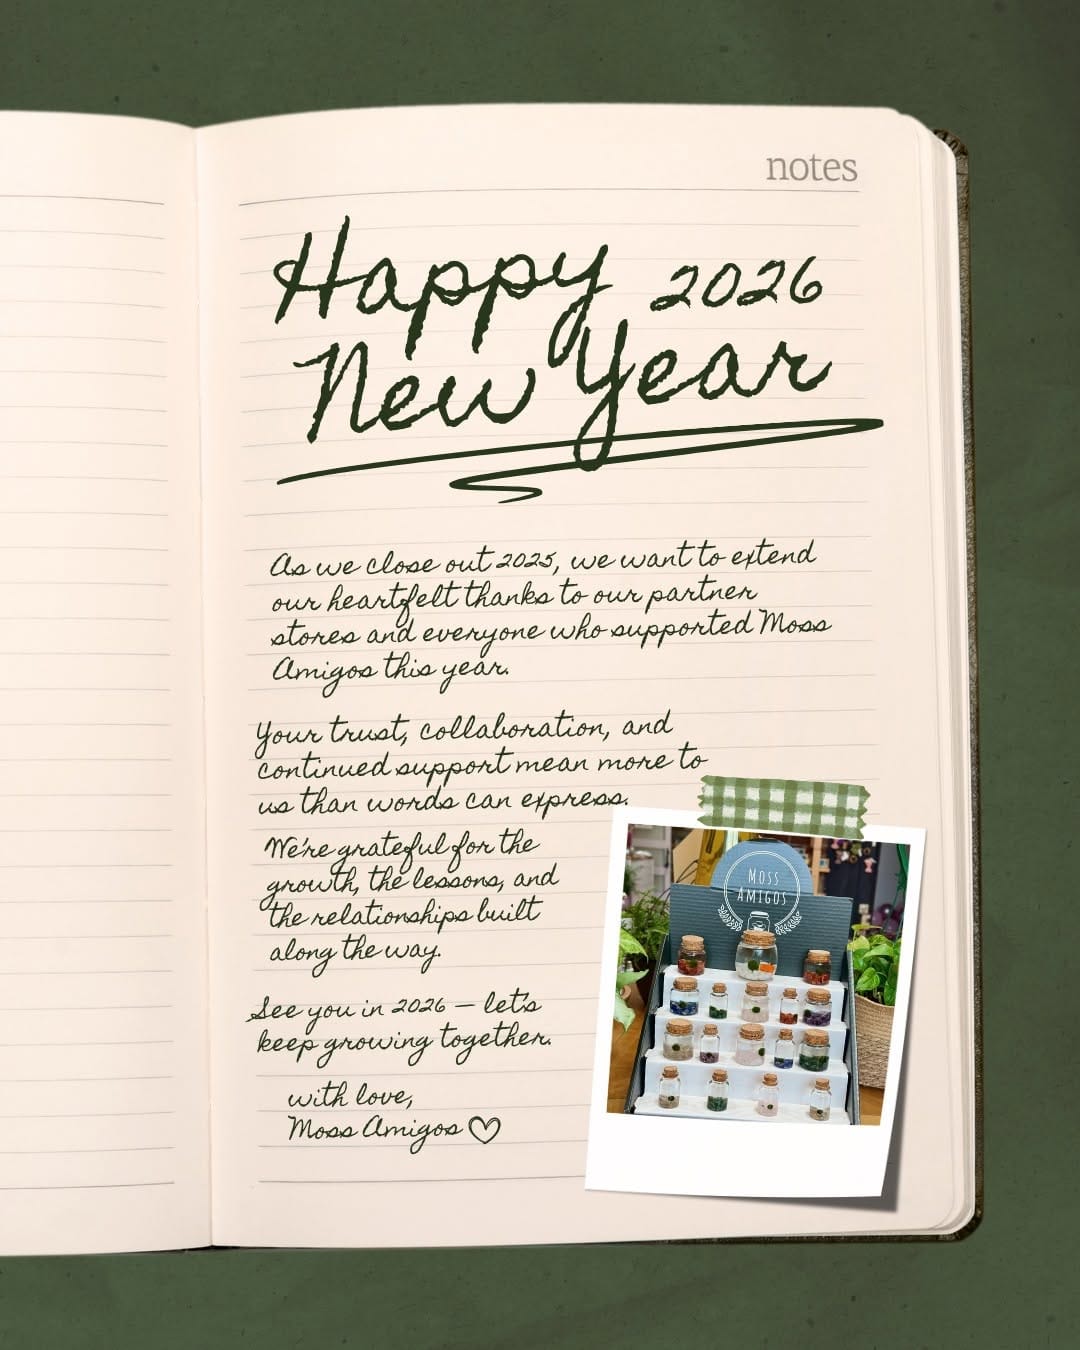 notes
Happy 2026
New Year
As we close out 2025, we want to extend
our heartfelt thanks to our partner
stores and everyone who supported Moss
Amigos this year.
Your trust, collaboration, and
continued support mean more to
us than words can express.
We're grateful for the
growth, the lessons, and
the relationships built
along the way.
See you in 2026 – let's
keep growing together.
with love,
Moss Amigos
MOSS
AMIGOS